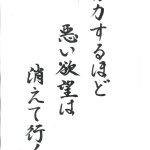 力するほど
悪い欲望は
消えて行く